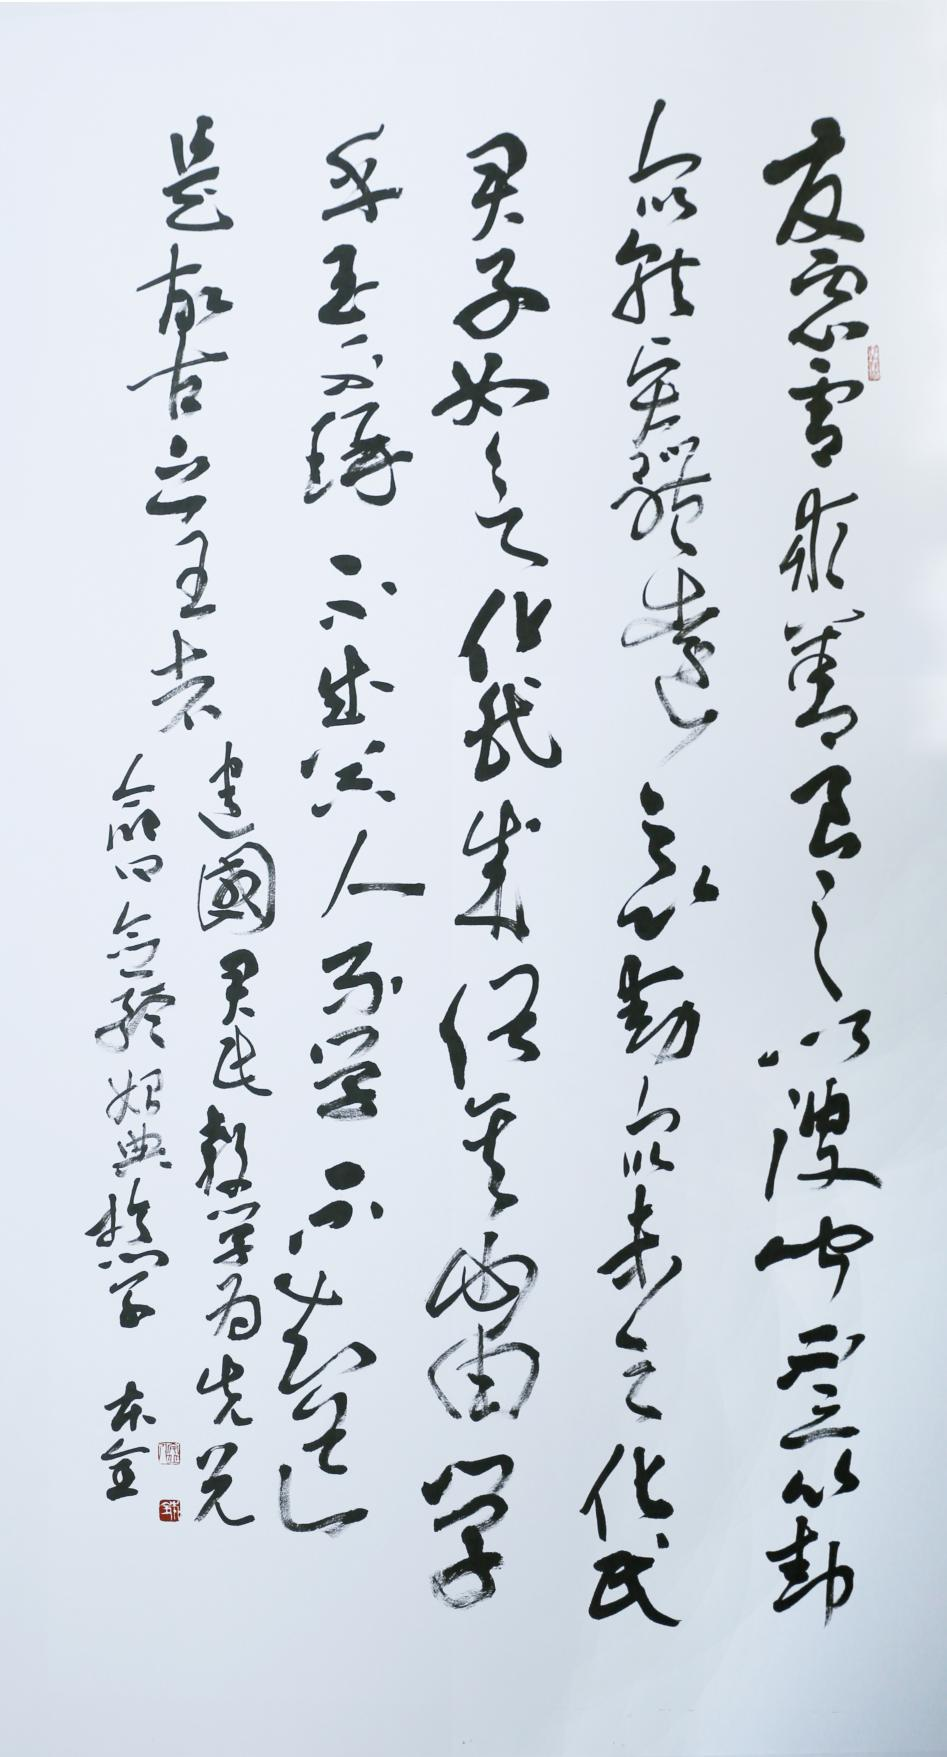 發慮憲求善良足以謏聞不足以動
眾就賢體遠足以動眾未足以化民
君子如欲化民成俗其必由學
乎玉不琢不成器人不學不知道
是故古之王者
建國君民教學為先兌
命曰念終始典於學